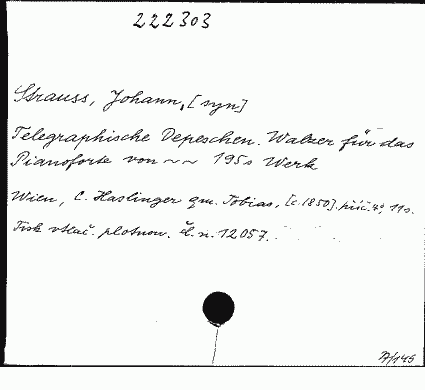 222303
Strauss, Johann, [syn]
Telegraphische Depeschen. Walzer für das
Pianoforte von ~~ 195s Werk
Wien, C. Haslinger qm. Tobias, [c.1850]. příč. 4°, 11 s.
Tisk vtlač. plotnou. Č. n. 12057.
A/145